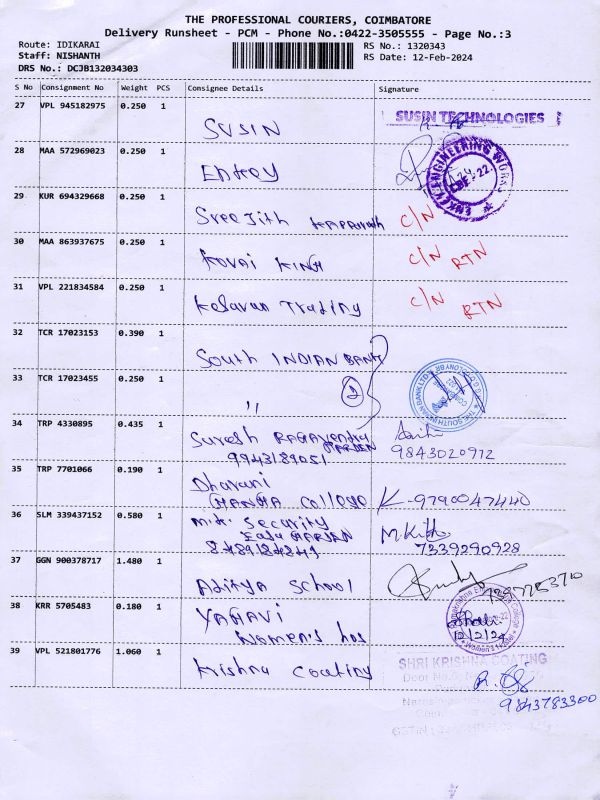 THE PROFESSIONAL COURIERS, COIMBATORE
Delivery Runsheet - PCM - Phone No.:0422-3505555 - Page No.:3
Route: IDIKARAI
RS No.: 1320343
Staff: NISHANTH
RS Date: 12-Feb-2024
DRS No.: DCJB132034303
S No Consignment No Weight PCS Consignee Details Signature
27 VPL 945182975 0.250 1
SUSIN TECHNOLOGIES
SUSIN
28 MAA 572969023 0.250 1
Enkey
ENKEY ENGINEERING WORKS
29 KUR 694329668 0.250 1
Sreejith C/N
30 MAA 863937675 0.250 1
Kovai King C/N RTN
31 VPL 221834584 0.250 1
Kesavan Trading C/N RTN
32 TCR 17023153 0.390 1
South INDIAN BANK
33 TCR 17023455 0.250 1
2
"
THE SOUTH INDIAN BANK LTD
34 TRP 4330895 0.435 1
Suresh RAGAVENDRA
9943189051
9843020972
35 TRP 7701066 0.190 1
Dharani
College K-9790047440
36 SLM 339437152 0.580 1
M.K. Security
7339290928
37 GGN 900378717 1.480 1
Aditya School
38 KRR 5705483 0.180 1
YAGAVI
12/2/24
Women's hos
39 VPL 521801776 1.060 1
SHRI KRISHNA COATING
Krishna Coating
9843783300